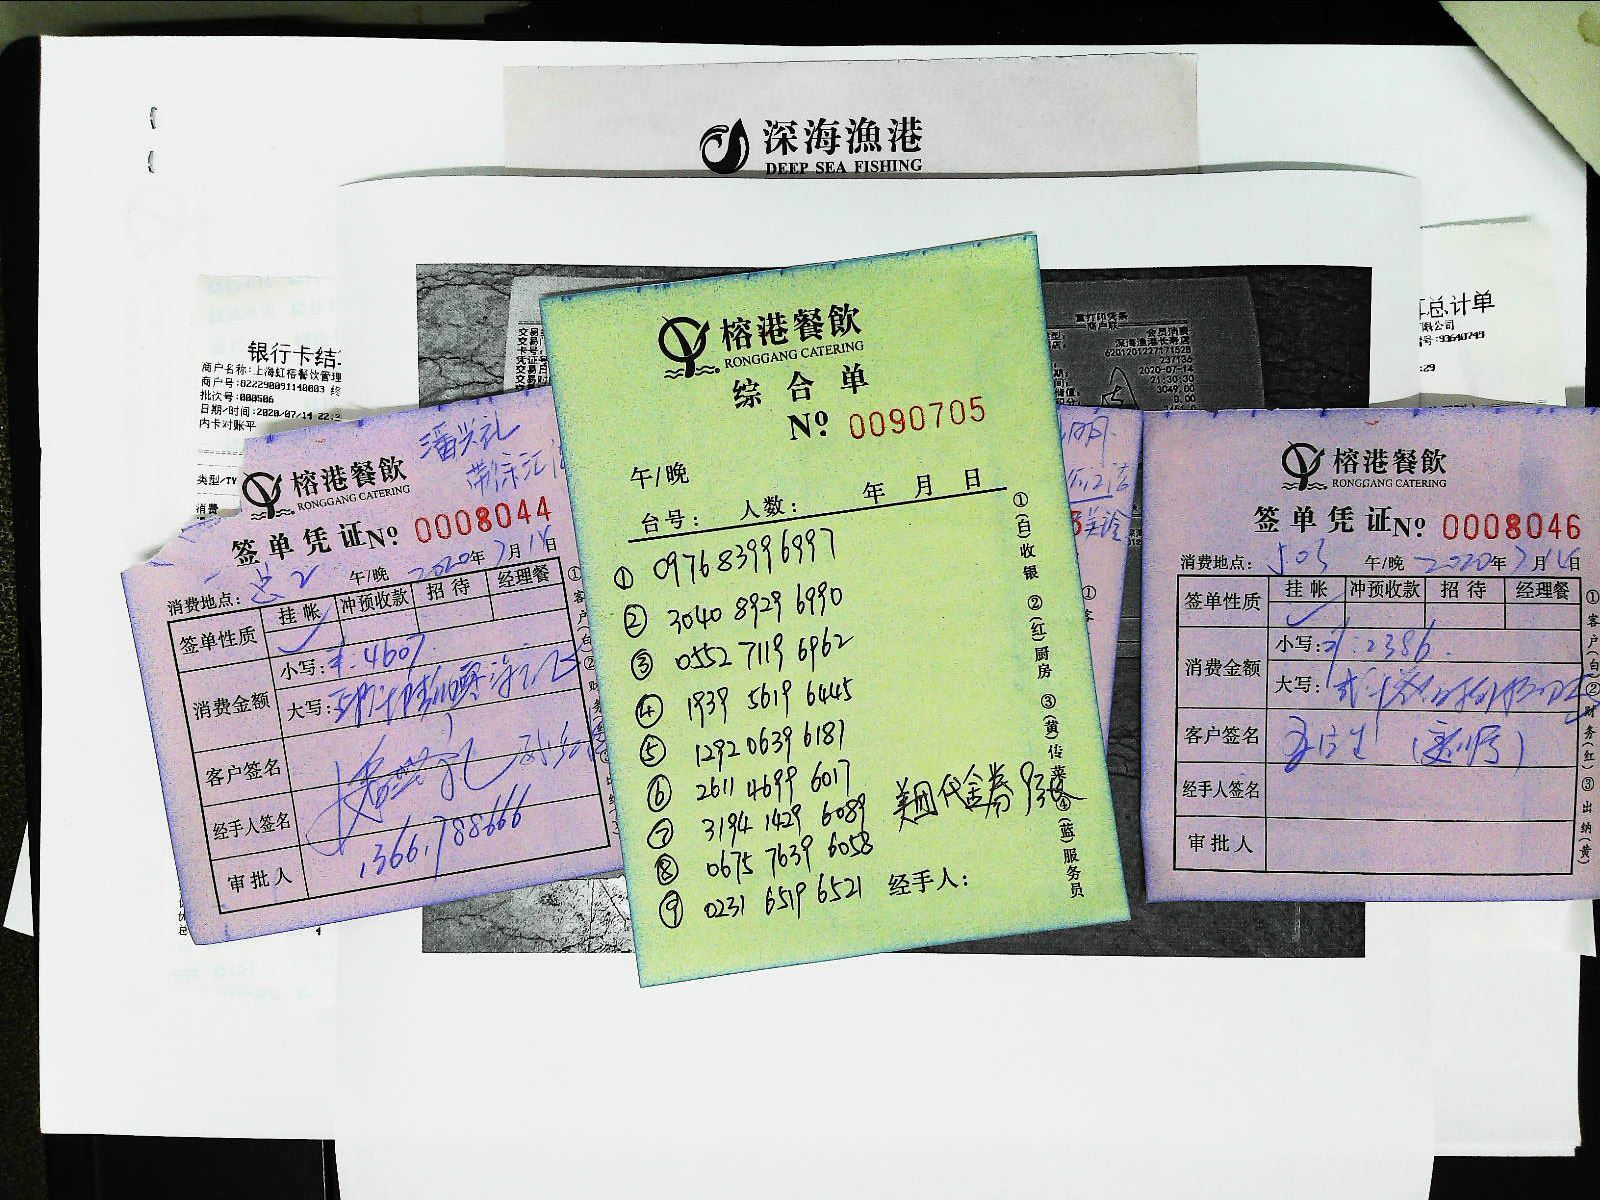 深海漁港
DEEP SEA FISHING
银行卡结
商户名称:上海虹榕餐饮管理
商户号:822290091140003 终
批次号:000506
日期/时间:2020/07/14 22:2
内卡对账平
类型/TY
消费
总计单
限公司
号:93640749
:29
重打印凭条
商户联
会员消费
深海渔港长寿店
6201201227171528
237136
2020-07-14
21:30:30
3049.00
0.00
潘兴礼
榕港餐飲
RONGGANG CATERING
签单凭证 № 0008044
消费地点: 午/晚 2020年7月14日
签单性质 挂帐 冲预收款 招待 经理餐
消费金额 小写: ¥:4607.
大写:
客户签名
经手人签名
审批人
榕港餐飲
RONGGANG CATERING
综合单
№ 0090705
午/晚
台号: 人数: 年 月 日
① 0976 8399 6997
② 3040 8929 6990
③ 0552 7119 6962
④ 1939 5619 6445
⑤ 1292 0639 6181
⑥ 2611 4699 6017
⑦ 3194 1429 6089
⑧ 0675 7639 6058
⑨ 0231 6519 6521
美团代金券9张
经手人:
①(白)收银 ②(红)厨房 ③(黄)传菜 ④(蓝)服务员
榕港餐飲
RONGGANG CATERING
签单凭证 № 0008046
消费地点: 503 午/晚 2020年7月14日
签单性质 挂帐 冲预收款 招待 经理餐
消费金额 小写: ¥:2386.
大写:
客户签名
经手人签名
审批人
①客户(白) ②财务(红) ③出纳(黄)